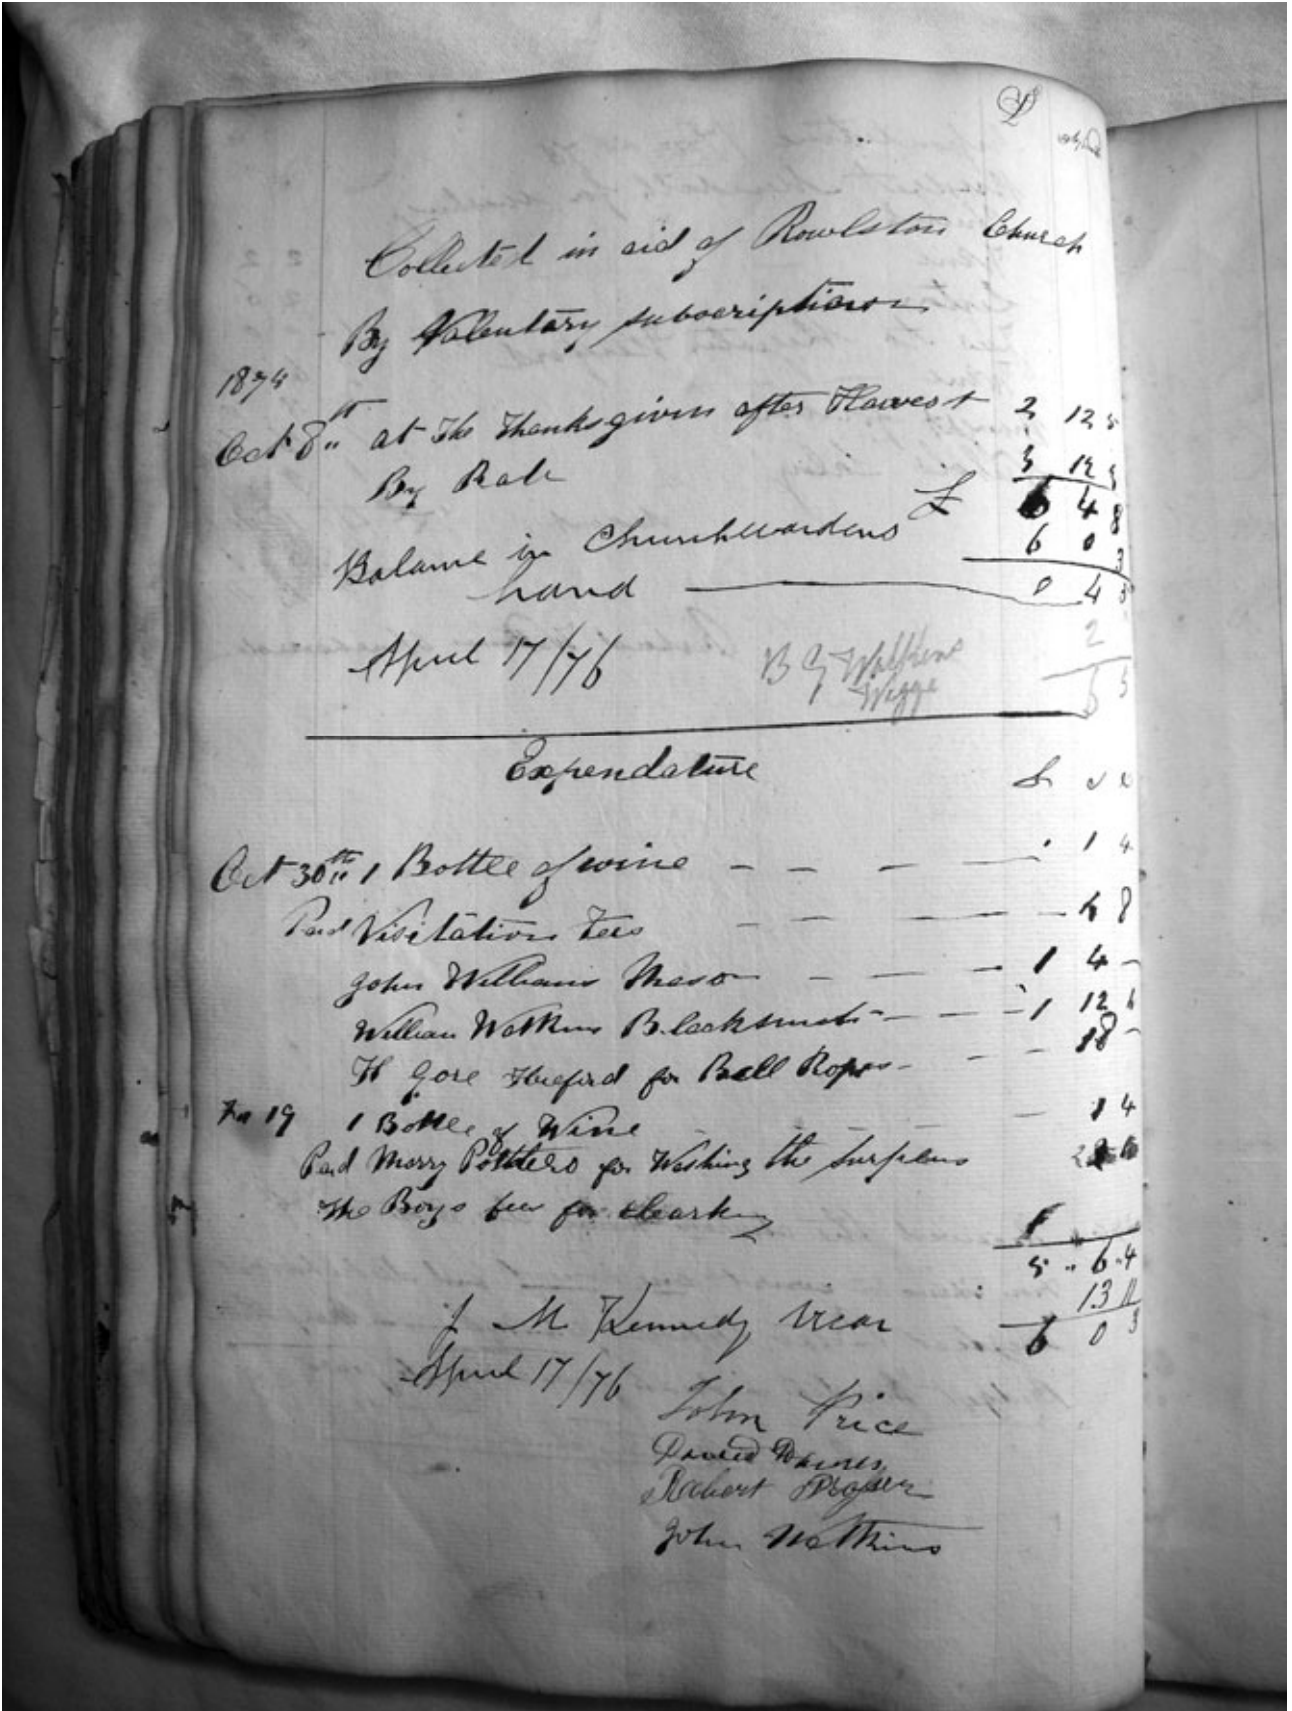 Collected in aid of Rowlston Church
By Voluntary subscriptions
187
Oct 8th at The Thanksgiven after Harvest 2 12 5
By Rate 3 12 3
£ 6 4 8
Balance in Churchwardens 6 0 3
hand 0 4 5
2
April 17/76 B G Watkins 6 5
Expendature £ s d
Oct 30th 1 Bottle of wine 1 4
Paid Visitation Fees 8
John Williams Mason 1 4 -
William Watkins Blacksmith 1 12 6
H Gore Hereford for Bell Ropes 18 -
19 1 Bottle of Wine 1 4
Paid Marry for Washing the Surplus
The Boys fees for clearking 1
5 " 6 " 4
13 11
J M Kennedy Vicar 6 0 3
April 17/76
John Price
David Davies
Robert Prosser
John Watkins